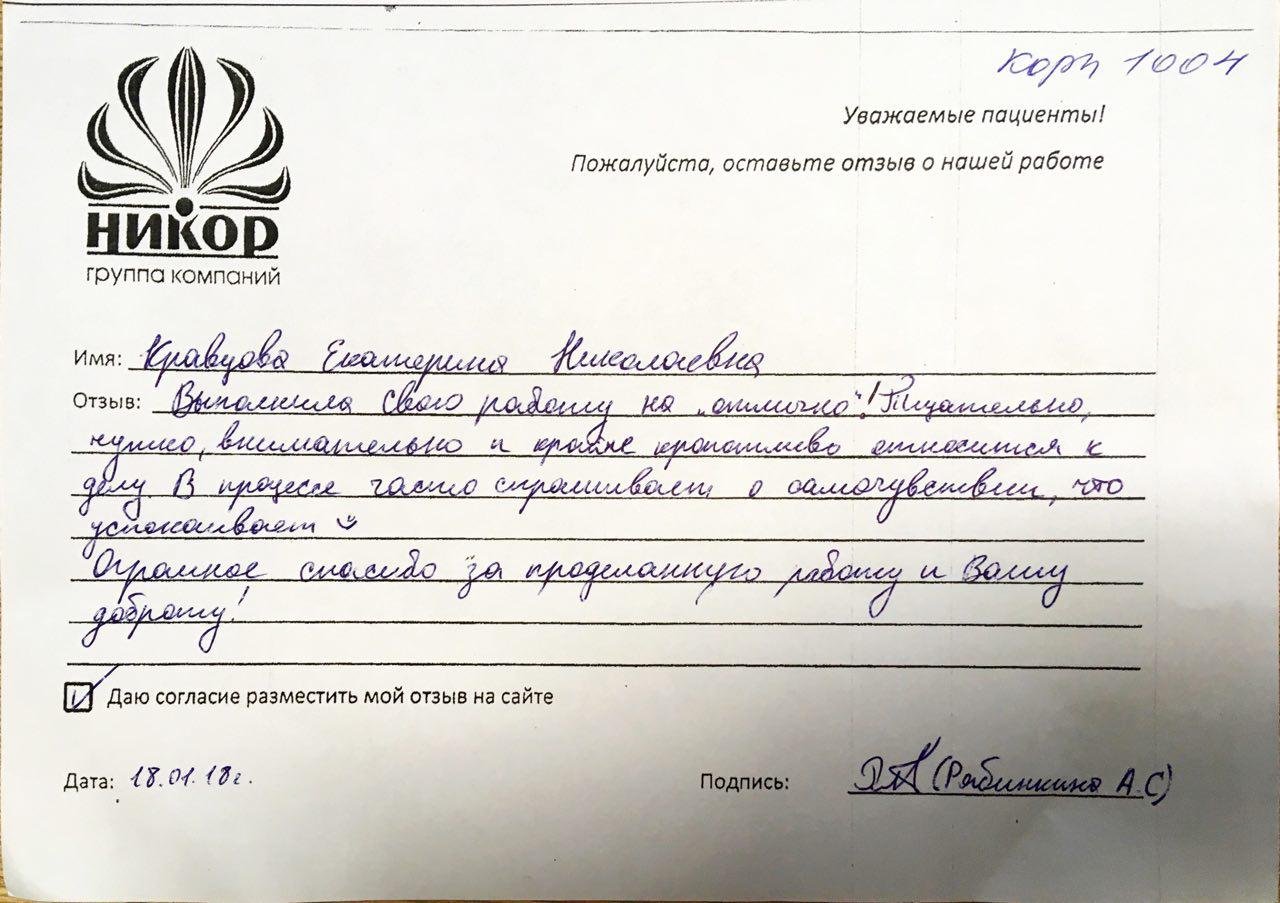 Корп 1004
Уважаемые пациенты!
Пожалуйста, оставьте отзыв о нашей работе
НИКОР
группа компаний
Имя: Кравцова Екатерина Николаевна
Отзыв: Выполнила свою работу на „отлично“! Тщательно,
чутко, внимательно и крайне кропотливо относится к
делу В процессе часто спрашивает о самочувствии, что
успокаивает
Огромное спасибо за проделанную работу и Вашу
доброту!
Даю согласие разместить мой отзыв на сайте
Дата: 18.01.18г.
Подпись: (Рябинкина А.С)